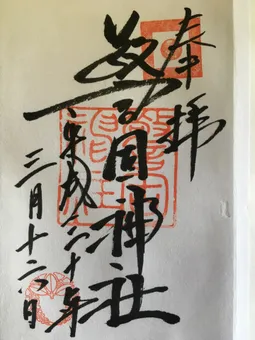 奉拝
警固神社
平成三十年
三月十二日